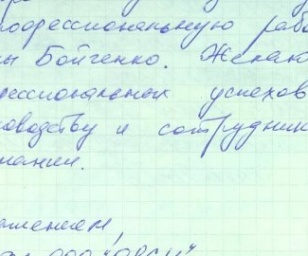 профессиональную рабо
ы Бойченко. Желаю
рессиональных успехов
ководству и сотрудник
пании.
ажением,
ООО "